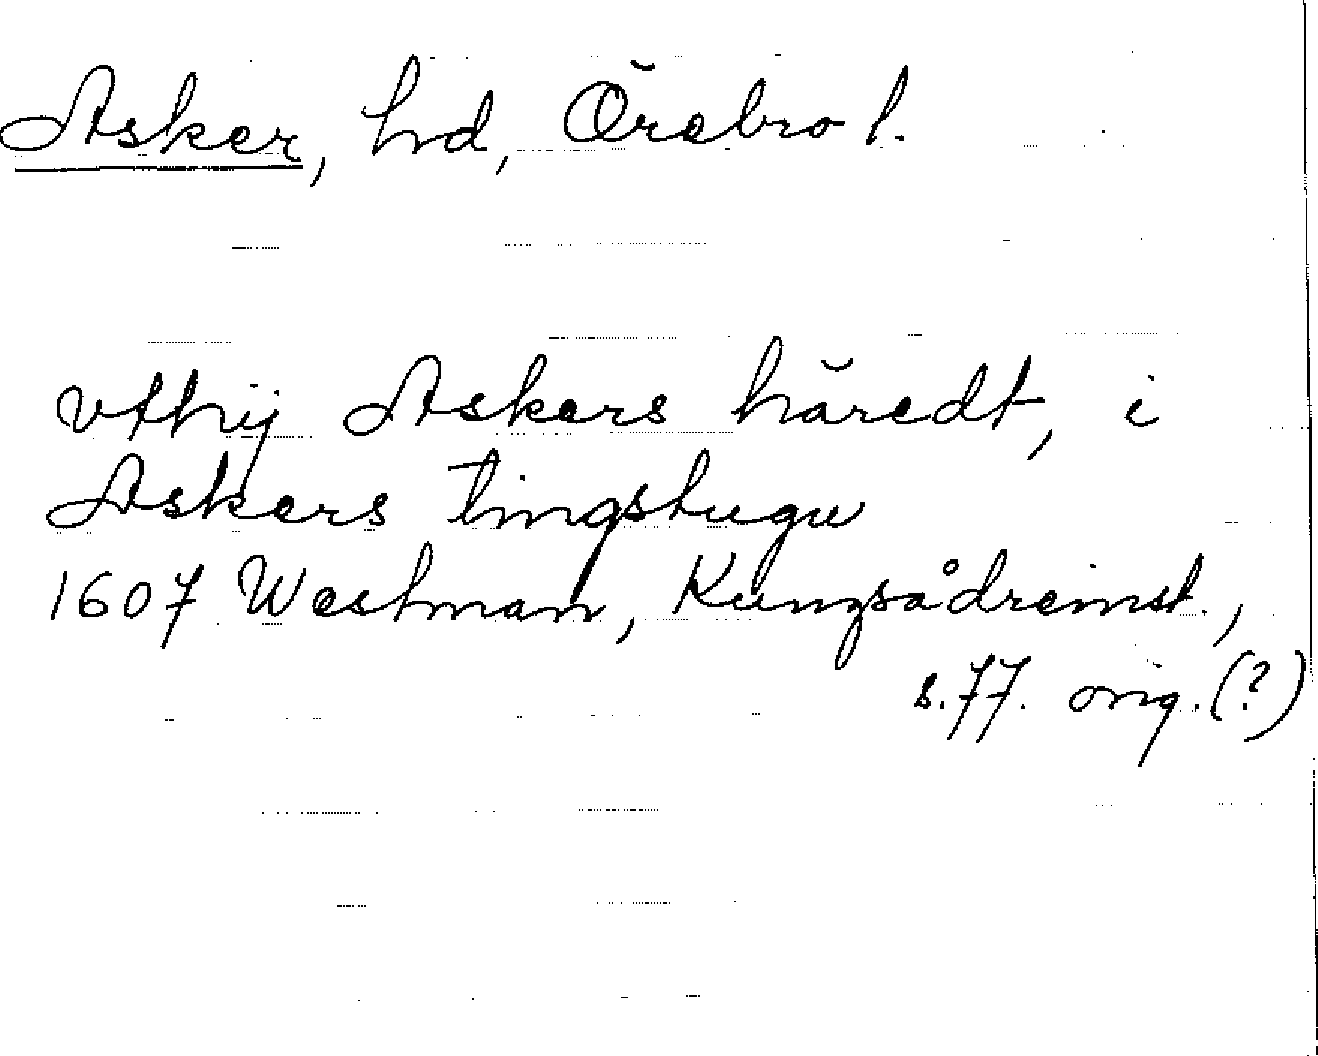 Asker, hd, Örebro l.
vthij Askers häredt, i
Askers tingstugu
1607 Westman, Kungsådreinst.,
s. 77. orig. (?)